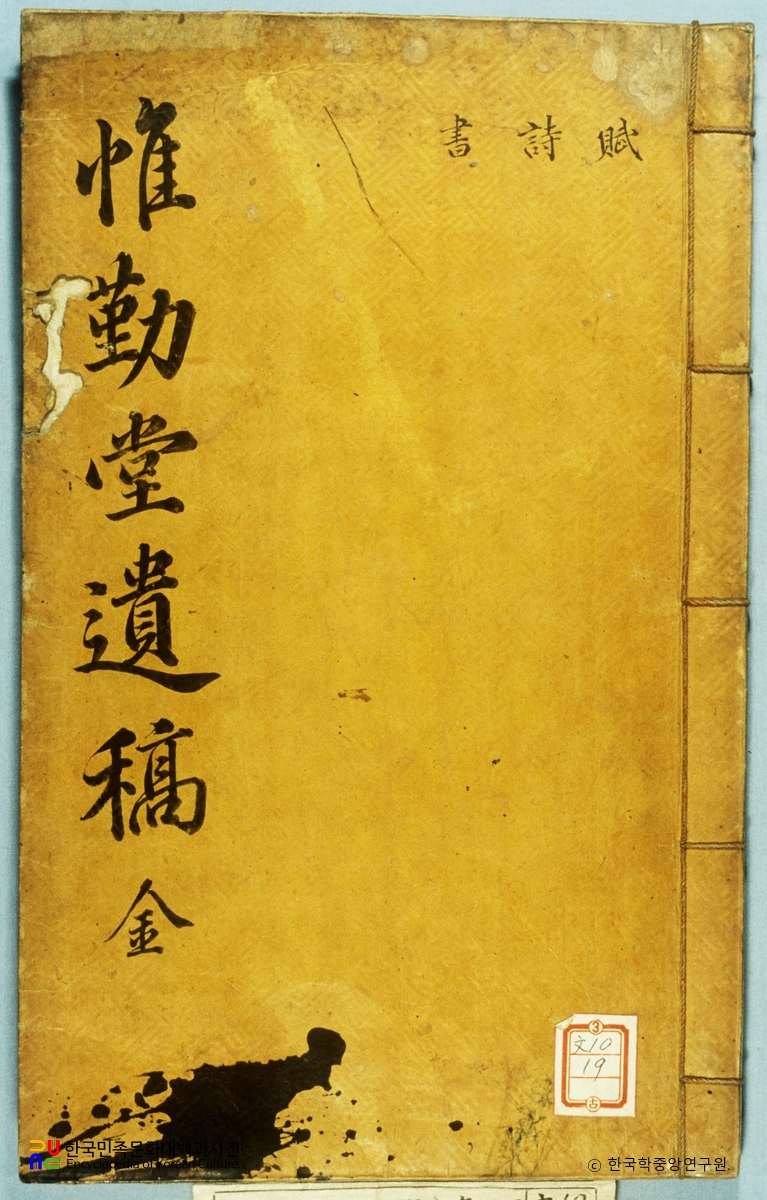 賦 詩 書
惟勤堂遺稿 金
3
文10
19
古
한국민족문화대백과사전
Encyclopedia of Korean Culture
© 한국학중앙연구원.